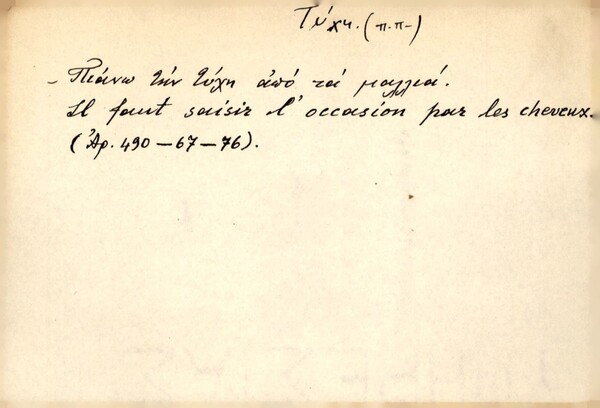 Τύχη. (π.π-)
- Πιάνω τήν τύχη ἀπό τά μαλλιά.
Il faut saisir l'occasion par les cheveux.
(Ἀρ. 490-67-76).